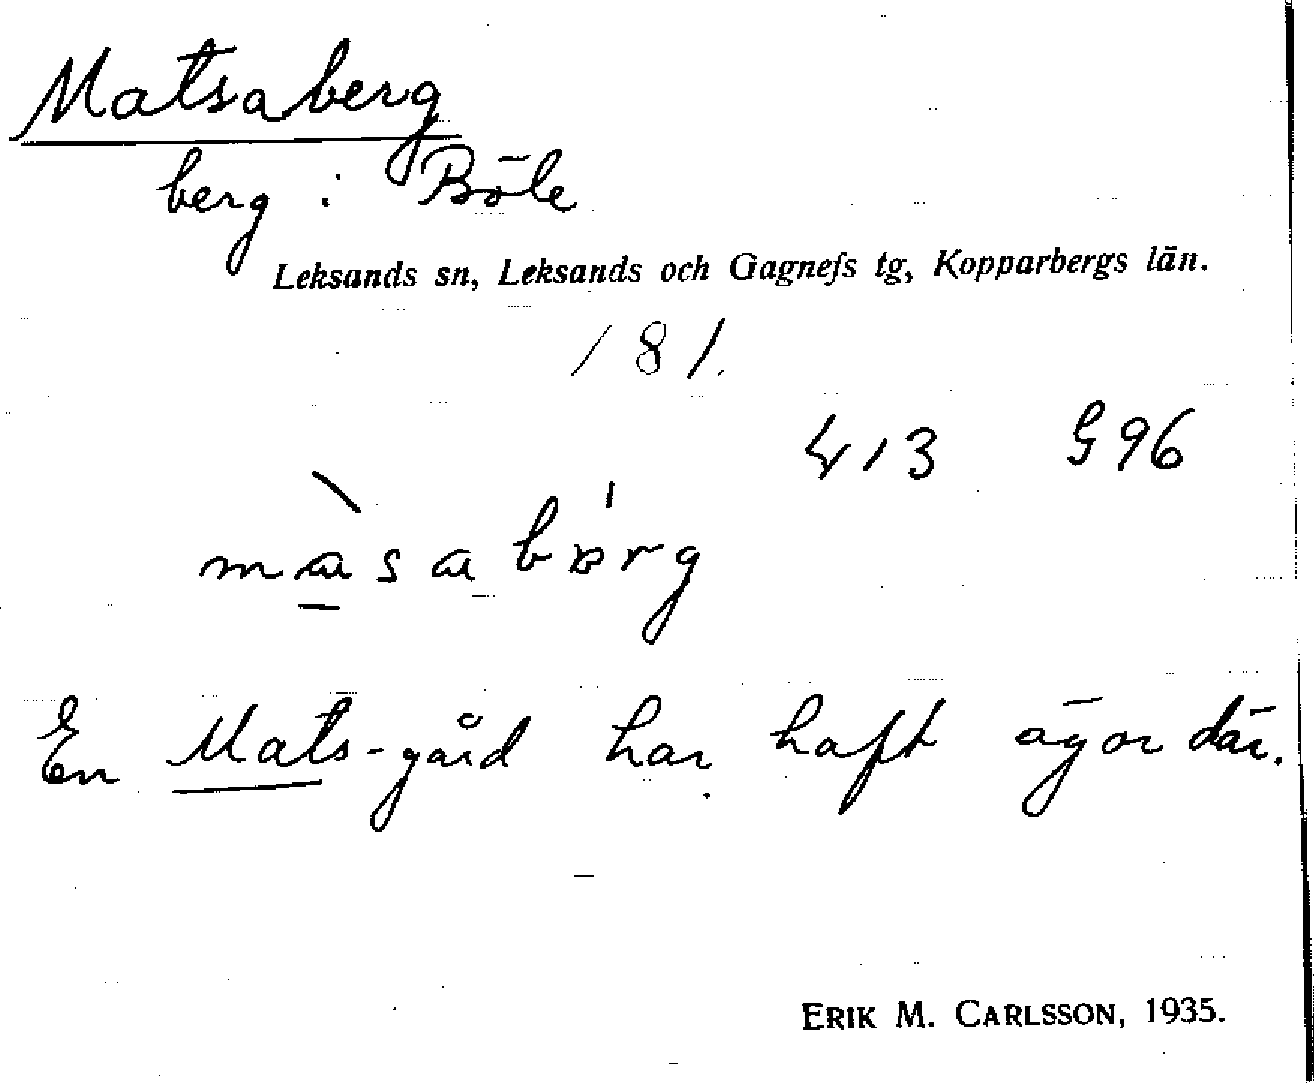 Matsaberg
berg i Böle
Leksands sn, Leksands och Gagnefs tg, Kopparbergs län.
181.
413 G96
En Mats-gård har haft ägor där.
ERIK M. CARLSSON, 1935.